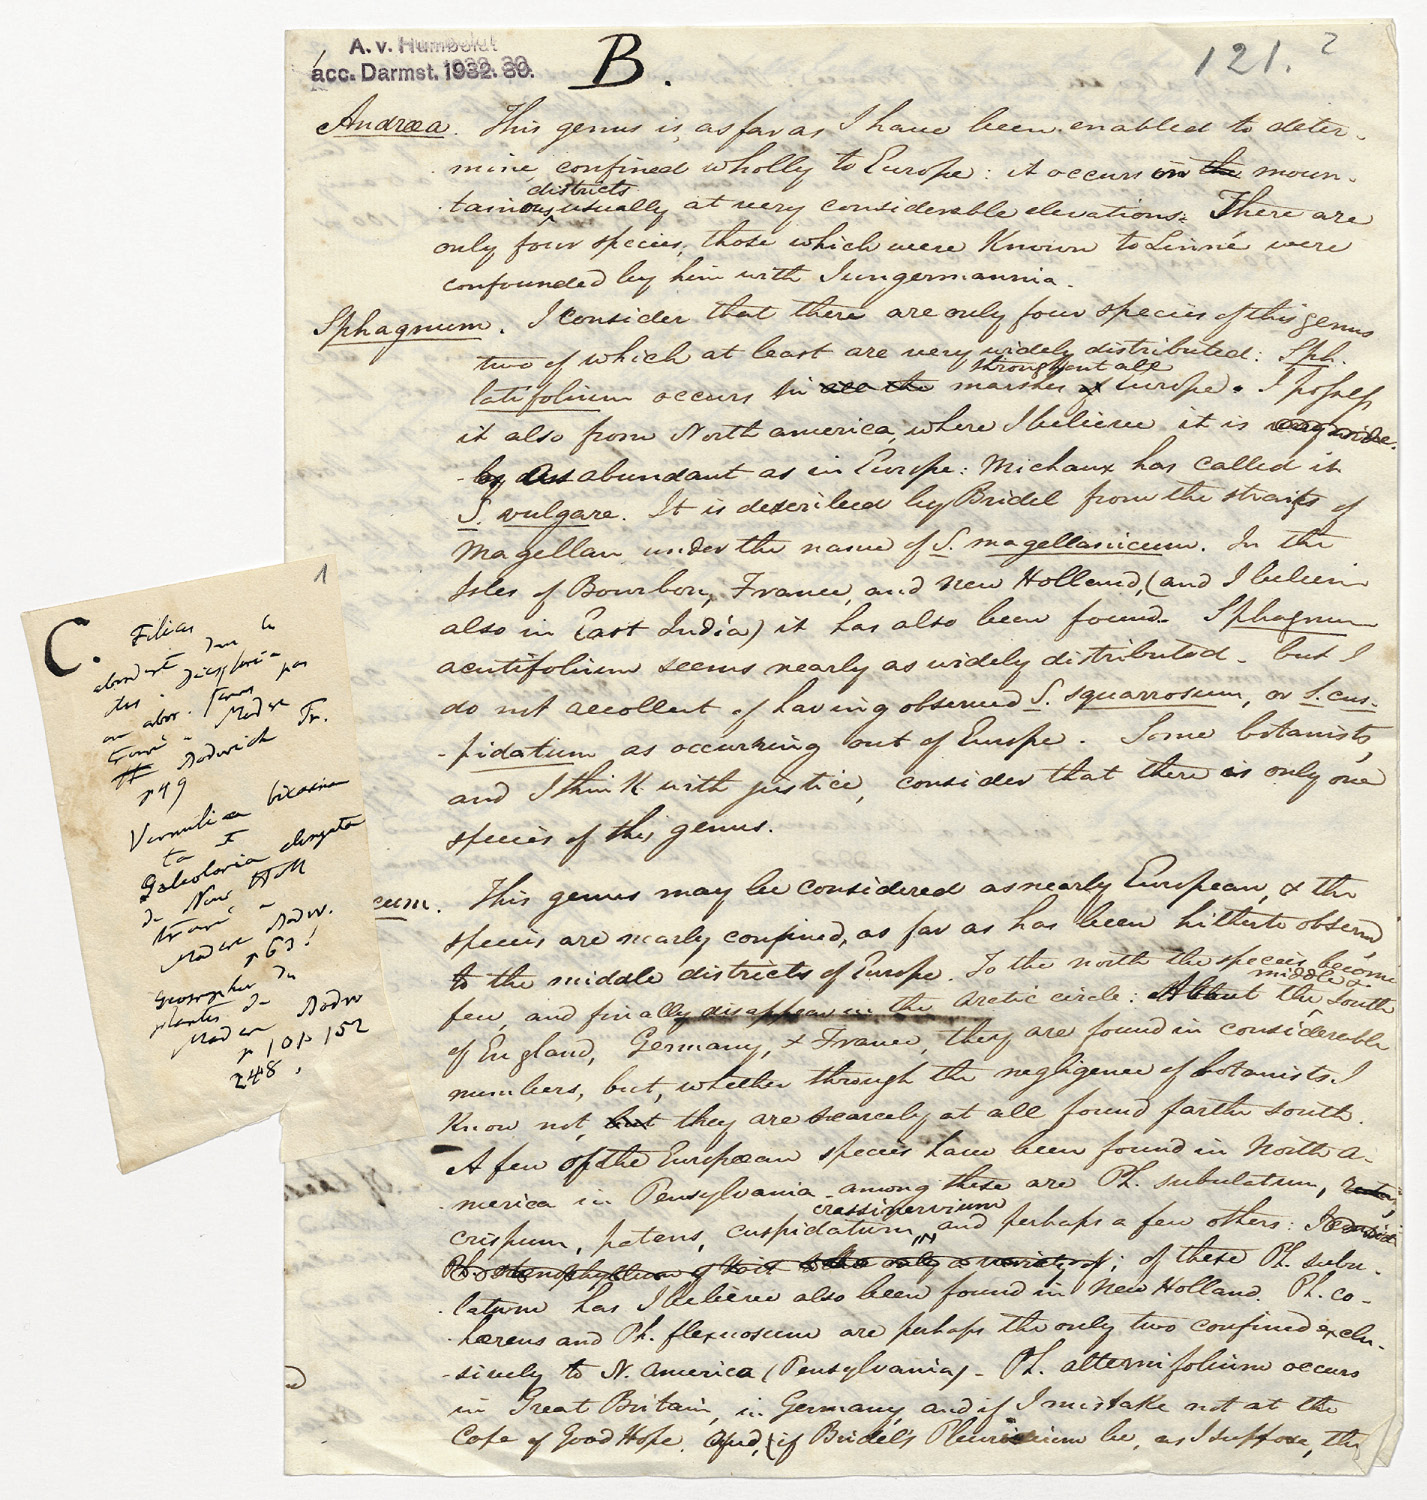 A. v. Humboldt
acc. Darmst. 1932. 30.
B.
121. 2
Andræa. This genus is, as far as I have been enabled to deter-
mine, confined wholly to Europe: it occurs in the moun-
districts
tainous, usually at very considerable elevations. There are
only four species, those which were known to Linné were
confounded by him with Jungermannia.
Sphagnum. I consider that there are only four species of this genus
two of which at least are very widely distributed: Sph.
throughout all
latifolium occurs in all the marshes of Europe. I possess
it also from North America, where I believe it is
as abundant as in Europe: Michaux has called it
S. vulgare. It is described by Bridel from the straits of
Magellan under the name of S. magellanicum. In the
Isles of Bourbon, France, and New Holland, (and I believe
also in East India) it has also been found. Sphagnum
acutifolium seems nearly as widely distributed - but I
do not recollect of having observed S. squarrosum, or S. cus-
pidatum as occurring out of Europe. Some botanists,
and I think with justice, consider that there is only one
species of this genus.
cum. This genus may be considered as nearly European, & the
species are nearly confined, as far as has been hitherto observed,
to the middle districts of Europe. To the north the species become
middle &
few, and finally disappear in the arctic circle: About the South
of England, Germany, & France, they are found in considerable
numbers, but, whether through the negligence of botanists I
know not, but they are scarcely at all found farther south.
A few of the European species have been found in North A-
merica in Pensylvania - among these are Ph. subulatum,
crassinervium
crispum, patens, cuspidatum, and perhaps a few others:
Ph. stenophyllum of Voit is the only a variety of; of these Ph. subu-
latum has I believe also been found in New Holland. Ph. co-
hærens and Ph. flexuosum are perhaps the only two confined exclu-
sively to N. America (Pensylvania) - Ph. alternifolium occurs
in Great Britain, in Germany, and if I mistake not at the
Cape of Good Hope. And, (if Bridel's Pleuridium be, as I suppose, the
1
C. Filices
abondent dans la
des
au abor. Tanas par
Forst
Sadwich Tr.
p 49
Vermilica
ta
Galeolaria elongata
de Nouv Holl
p 63!
Geographie des
plantes de
p 101-152
248.